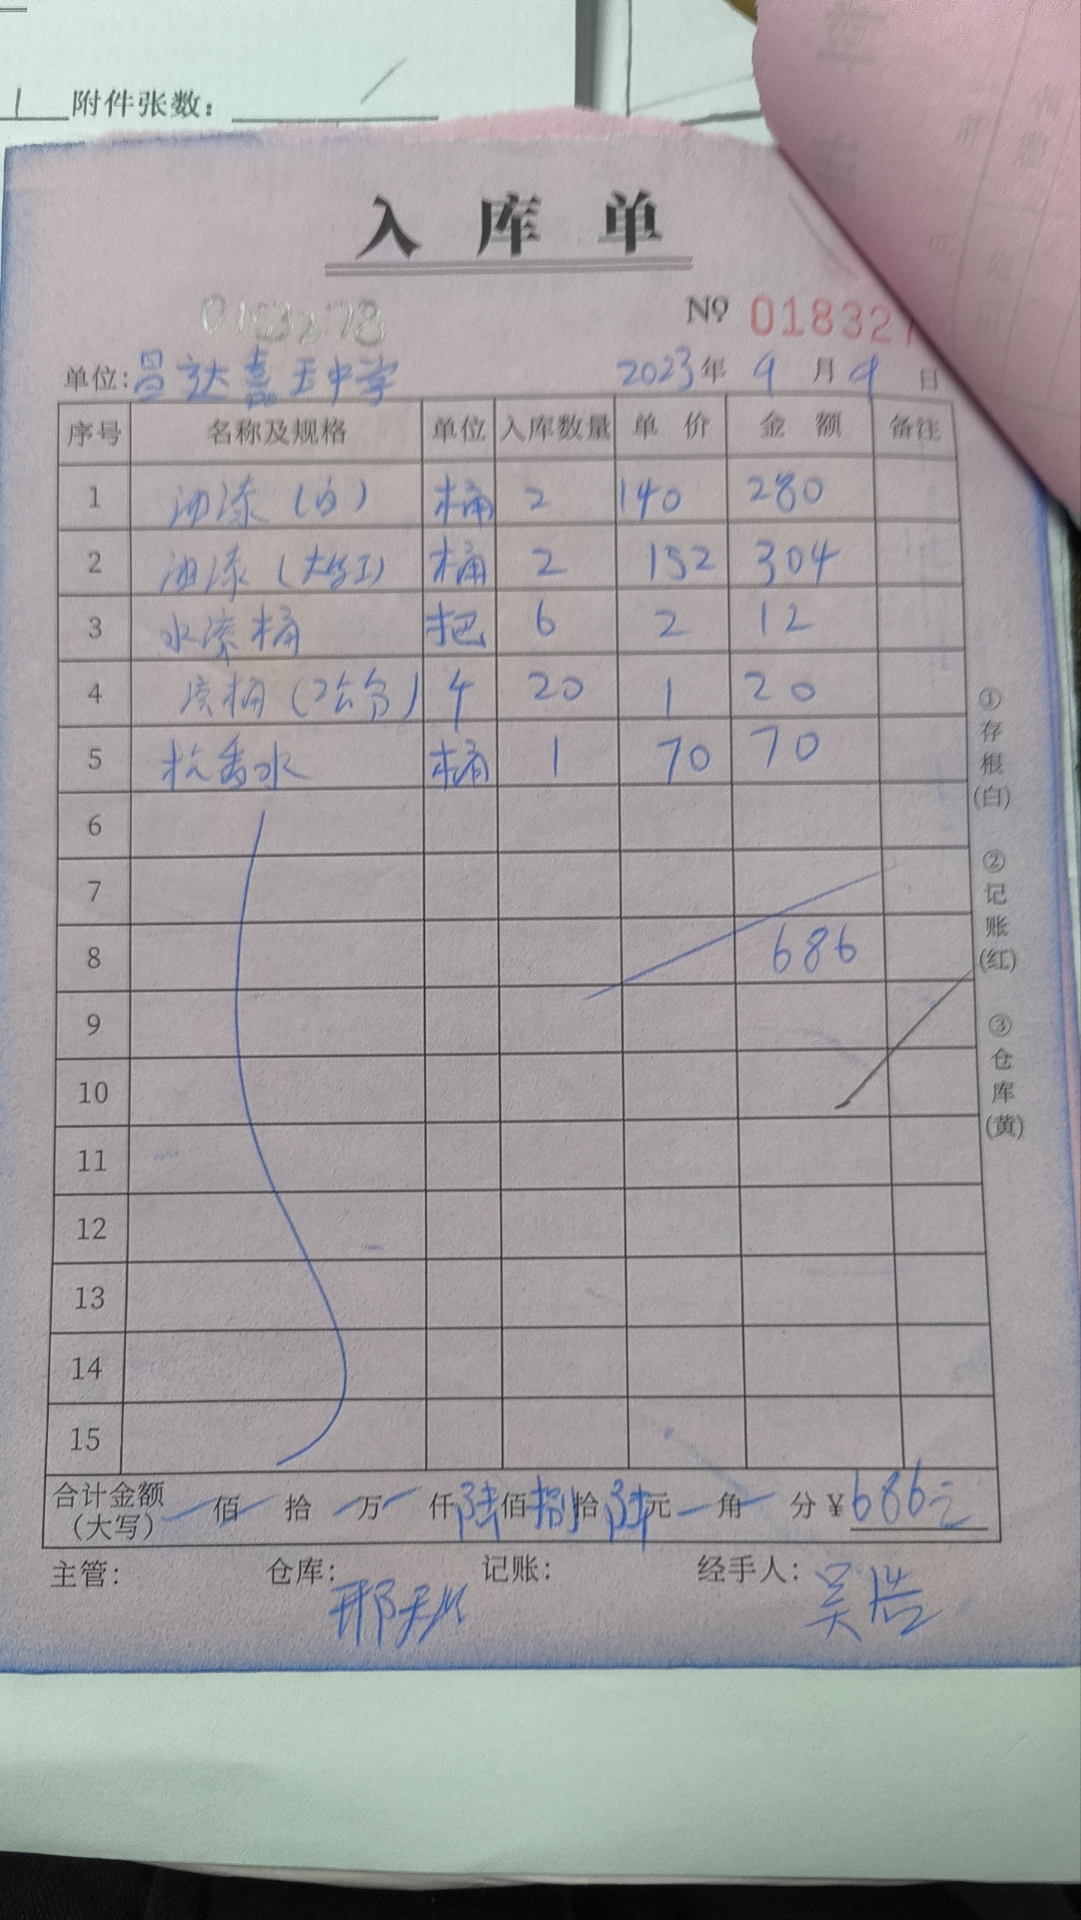 附件张数：
入库单
0183278
№ 018327
单位：昌达嘉王中学 2023年9月9日
序号 名称及规格 单位 入库数量 单价 金额 备注
1 油漆（白） 桶 2 140 280
2 油漆（大红） 桶 2 152 304
3 水漆桶 把 6 2 12
4 桶（2公分） 个 20 1 20
5 松香水 桶 1 70 70
6
7
8 686
9
10
11
12
13
14
15
合计金额（大写） 佰 拾 万 仟陆佰捌拾陆元 角 分 ¥686元
主管： 仓库：邢 记账： 经手人：吴浩
①存根(白) ②记账(红) ③仓库(黄)